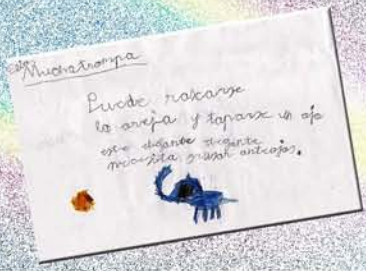 Muchatrompa
Puede rascarse
la oreja y taparse un ojo
este elegante
necesita usar anteojos.